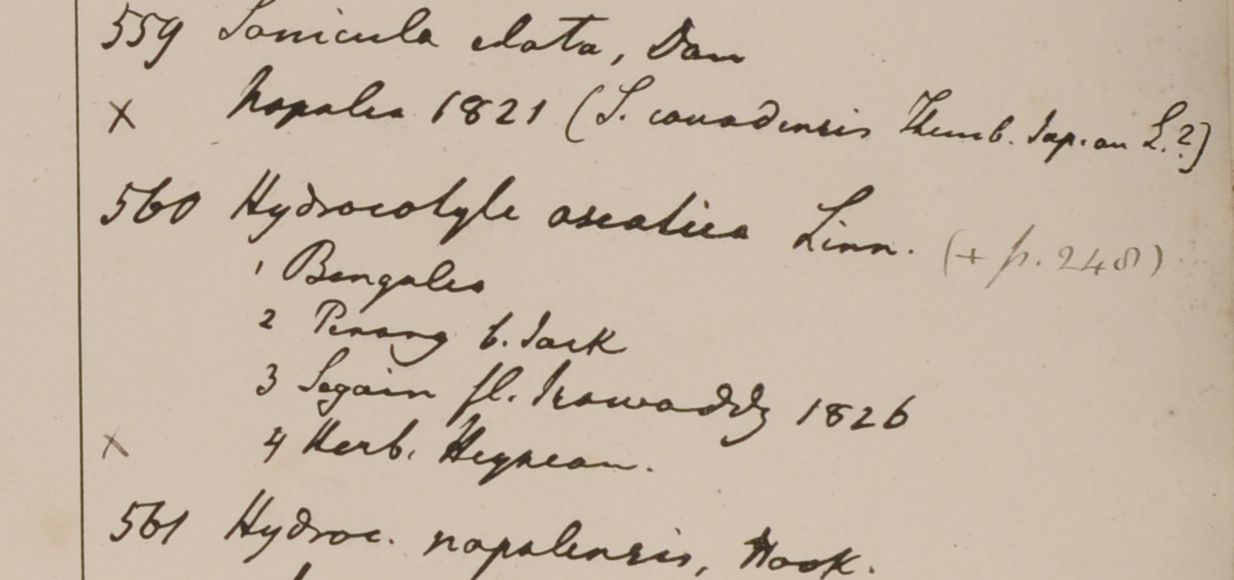 559 Sanicula elata, Don
× Napalia 1821 (S. canadensis Thunb. Jap. an L.?)
560 Hydrocotyle asiatica Linn. (+ p. 248)
1 Bengalia
2 Penang G. Jack
3 Segain fl. Irawaddy 1826
× 4 Herb. Heynean.
561 Hydroc. napalensis, Hook.